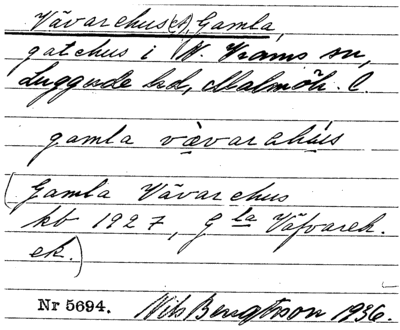 Vävarehus(et), Gamla,
gatehus i N. Vrams sn,
Luggude hd, Malmöh. l.
gamla vävarahús
(Gamla Vävarehus
kb 1927, G la Väfvareh.
ek.)
Nr 5694. Nils Bengtsson 1936.